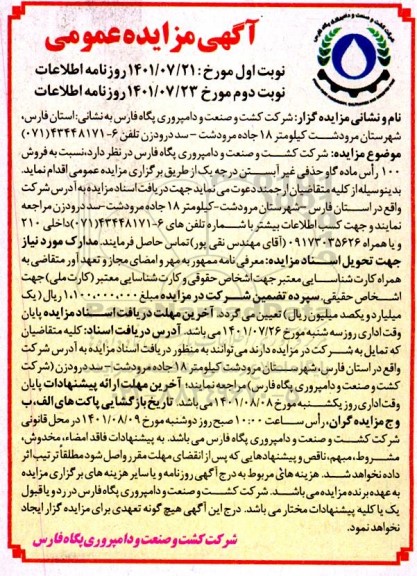 آگهی مزایده عمومی
نوبت اول مورخ : ۱۴۰۱/۰۷/۲۱ روزنامه اطلاعات
نوبت دوم مورخ ۱۴۰۱/۰۷/۲۳ روزنامه اطلاعات
نام و نشانی مزایده گزار: شرکت کشت و صنعت و دامپروری پگاه فارس به نشانی: استان فارس،
شهرستان مرودشت کیلومتر ۱۸ جاده مرودشت - سد درودزن تلفن ۶-۴۳۴۴۸۱۷۱(۰۷۱)
موضوع مزایده: شرکت کشت و صنعت و دامپروری پگاه فارس در نظر دارد، نسبت به فروش
۱۰۰ رأس ماده گاو حذفی غیر آبستن درجه یک از طریق برگزاری مزایده عمومی اقدام نماید.
بدینوسیله از کلیه متقاضیان ارجمند دعوت می نماید جهت دریافت اسناد مزایده به آدرس شرکت
واقع در استان فارس - شهرستان مرودشت-کیلومتر ۱۸ جاده مرودشت-سد درودزن مراجعه
نمایند و جهت کسب اطلاعات بیشتر با شماره تلفن های ۶-۴۳۴۴۸۱۷۱(۰۷۱) داخلی ۲۱۰
و یا همراه ۰۹۱۷۳۰۳۵۶۲۶ (آقای مهندس نقی پور) تماس حاصل فرمایند. مدارک مورد نیاز
جهت تحویل اسناد مزایده: معرفی نامه ممهور به مهر و امضای مجاز و تعهد آور متقاضی به
همراه کارت شناسایی معتبر جهت اشخاص حقوقی و کارت شناسایی معتبر (کارت ملی) جهت
اشخاص حقیقی. سپرده تضمین شرکت در مزایده مبلغ ۱,۱۰۰,۰۰۰,۰۰۰ ریال (یک
میلیارد و یکصد میلیون ریال) تعیین می گردد. آخرین مهلت دریافت اسناد مزایده پایان
وقت اداری روز سه شنبه مورخ ۱۴۰۱/۰۷/۲۶ می باشد. آدرس دریافت اسناد: کلیه متقاضیان
که تمایل به شرکت در مزایده دارند می توانند به منظور دریافت اسناد مزایده به آدرس شرکت
واقع در استان فارس، شهرستان مرودشت کیلومتر ۱۸ جاده مرودشت - سد درودزن (شرکت
کشت و صنعت و دامپروری پگاه فارس) مراجعه نمایند؛ آخرین مهلت ارائه پیشنهادات پایان
وقت اداری روز یکشنبه مورخ ۱۴۰۱/۰۸/۰۸ می باشد. تاریخ بازگشایی پاکت های الف، ب
و ج مزایده گران، رأس ساعت ۱۰:۰۰ صبح روز دوشنبه مورخ ۱۴۰۱/۰۸/۰۹ در محل قانونی
شرکت کشت و صنعت و دامپروری پگاه فارس می باشد. به پیشنهادات فاقد امضاء، مخدوش،
مشروط، مبهم، ناقص و پیشنهادهایی که پس از انقضای مهلت مقرر واصل شود مطلقا ترتیب اثر
داده نخواهد شد. هزینه های مربوط به درج آگهی روزنامه و یا سایر هزینه های برگزاری مزایده
به عهده برنده مزایده می باشد. شرکت کشت و صنعت و دامپروری پگاه فارس در رد و یا قبول
یک یا کلیه پیشنهادات مختار می باشد. درج این آگهی هیچ گونه تعهدی برای مزایده گزار ایجاد
نخواهد نمود.
شرکت کشت و صنعت و دامپروری پگاه فارس